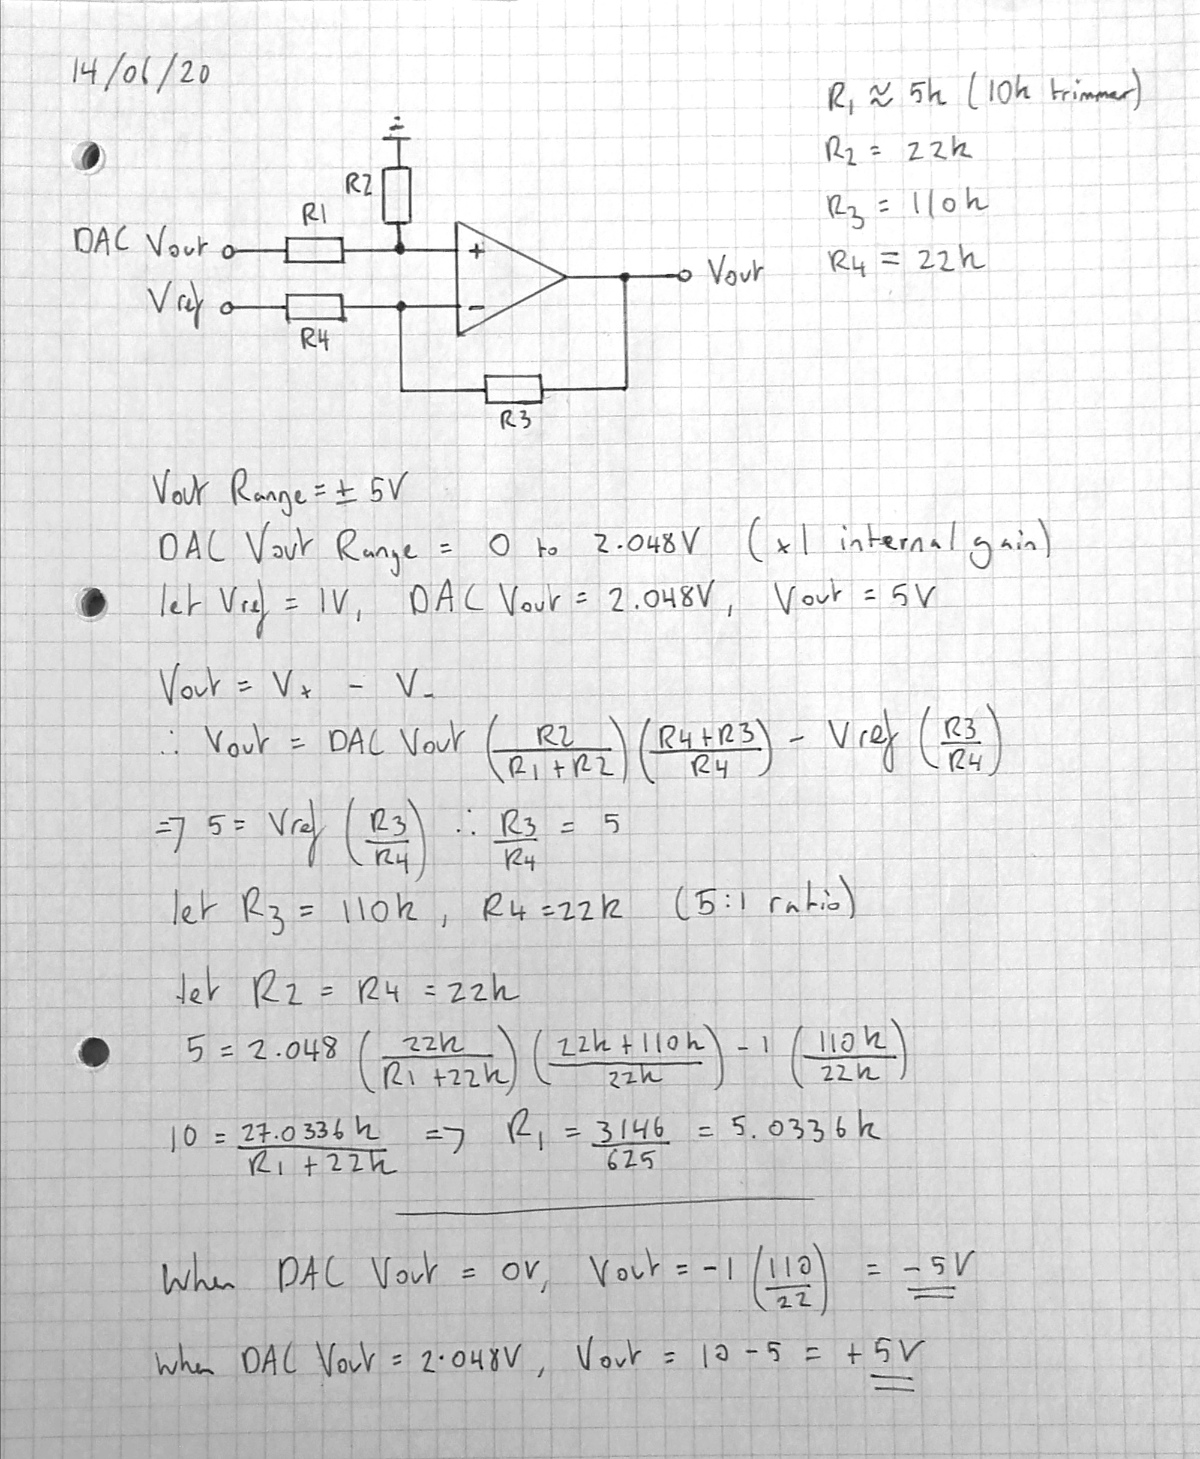 14/06/20
R₁ ≈ 5k (10k trimmer)
R2 = 22k
R3 = 110k
R4 = 22k
R2
R1
DAC Vout
+
Vout
Vref
-
R4
R3
Vout Range = ± 5V
DAC Vout Range = 0 to 2.048V (x1 internal gain)
let Vref = 1V, DAC Vout = 2.048V, Vout = 5V
Vout = V₊ - V₋
∴ Vout = DAC Vout (R2/(R1 + R2)) ((R4+R3)/R4) - Vref (R3/R4)
=> 5 = Vref (R3/R4) ∴ R3/R4 = 5
let R3 = 110k, R4 = 22k (5:1 ratio)
let R2 = R4 = 22k
5 = 2.048 (22k/(R1 + 22k)) ((22k + 110k)/22k) - 1 (110k/22k)
10 = 27.0336k/(R1 + 22k) => R₁ = 3146/625 = 5.0336k
When DAC Vout = 0V, Vout = -1 (110/22) = -5V
when DAC Vout = 2.048V, Vout = 10 - 5 = +5V